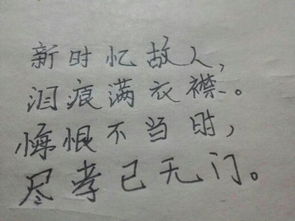 新时忆故人,
泪痕满衣襟。
悔恨不当时,
尽孝已无门。